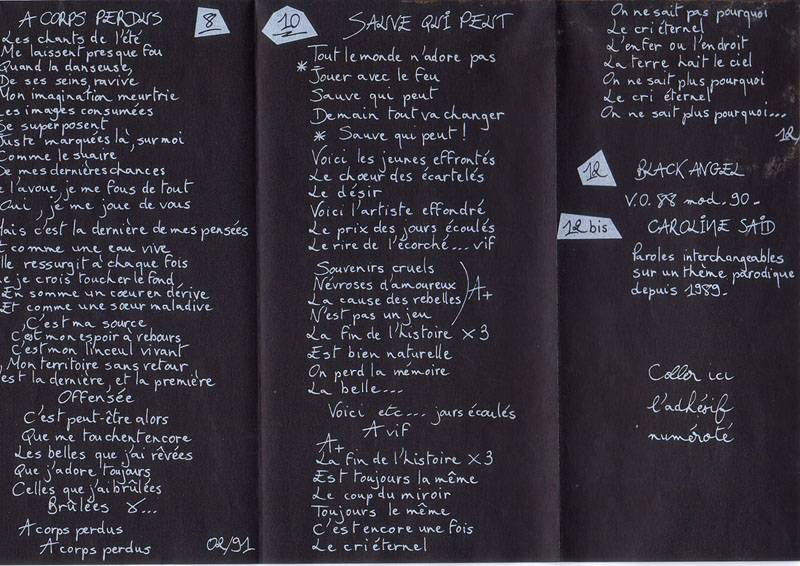 A CORPS PERDUS
8
Les chants de l'été
Me laissent presque fou
Quand la danseuse,
De ses seins, ravive
Mon imagination meurtrie
Les images consumées
Se superposent
Juste marquées là, sur moi
Comme le suaire
De mes dernières chances
e l'avoue, je me fous de tout
Oui, je me joue de vous
Mais c'est la dernière de mes pensées
Et comme une eau vive
lle ressurgit à chaque fois
e je crois toucher le fond
En somme un cœur en dérive
Et comme une sœur maladive
C'est ma source
C'est mon espoir à rebours
C'est mon linceul vivant
Mon territoire sans retour
est la dernière, et la première
Offensée
C'est peut-être alors
Que me touchent encore
Les belles que j'ai rêvées
Que j'adore toujours
Celles que j'ai brûlées
Brûlées &...
A corps perdus
A corps perdus
02/91
10
SAUVE QUI PEUT
Tout le monde n'adore pas
* Jouer avec le feu
Sauve qui peut
Demain tout va changer
* Sauve qui peut !
Voici les jeunes effrontés
Le chœur des écartelés
Le désir
Voici l'artiste effondré
Le prix des jours écoulés
Le rire de l'écorché... vif
Souvenirs cruels
Névroses d'amoureux
La cause des rebelles
N'est pas un jeu
A+
La fin de l'histoire x 3
Est bien naturelle
On perd la mémoire
La belle...
Voici etc... jours écoulés
A vif
A+
La fin de l'histoire x 3
Est toujours la même
Le coup du miroir
Toujours le même
C'est encore une fois
Le cri éternel
On ne sait pas pourquoi
Le cri éternel
L'enfer ou l'endroit
La terre hait le ciel
On ne sait plus pourquoi
Le cri éternel
On ne sait plus pourquoi...
12/
12
BLACK ANGEL
V.O. 88 mod. 90.
12 bis
CAROLINE SAID
Paroles interchangeables
sur un thème parodique
depuis 1989.
Coller ici
l'adhésif
numéroté